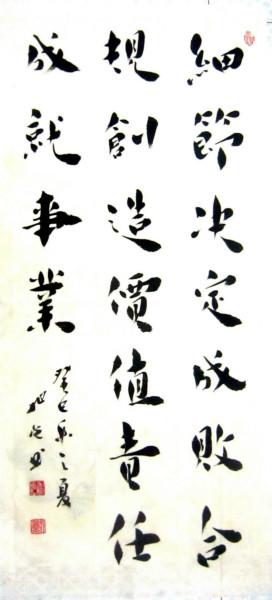 細節决定成敗合
規創造價值責任
成就事業
癸巳年之夏